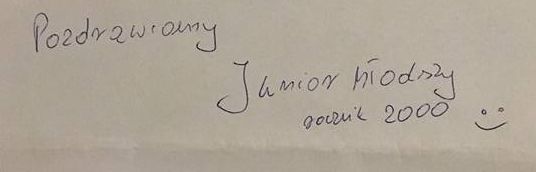 Pozdrawiamy
Junior Młodszy
rocznik 2000 :)